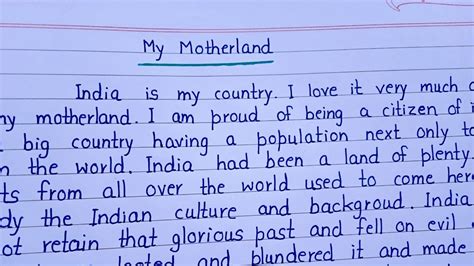 My Motherland
India is my country. I love it very much
my motherland. I am proud of being a citizen of
big country having a population next only to
in the world. India had been a land of plenty.
ts from all over the world used to come here
dy the Indian culture and backgroud. India
ot retain that glorious past and fell on evil
looted and blundered it and made